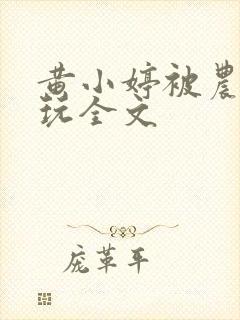 黄小婷被農
玩全文
庞革平